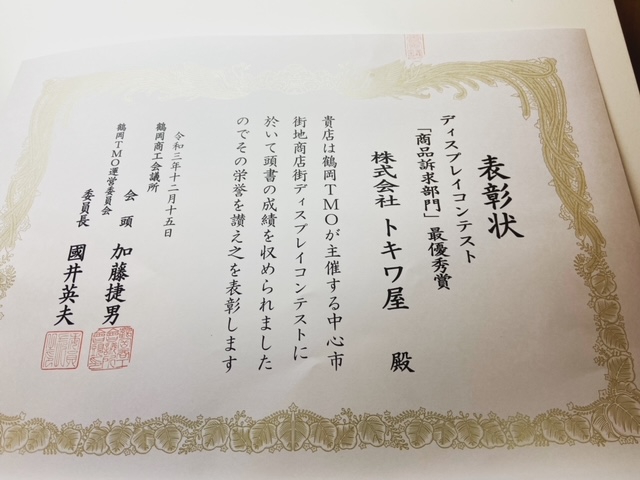 表彰状
ディスプレイコンテスト
「商品訴求部門」最優秀賞
株式会社 トキワ屋 殿
貴店は鶴岡TMOが主催する中心市
街地商店街ディスプレイコンテストに
於いて頭書の成績を収められました
のでその栄誉を讃え之を表彰します
令和三年十二月十五日
鶴岡商工会議所
会頭 加藤捷男
鶴岡TMO運営委員会
委員長 國井英夫